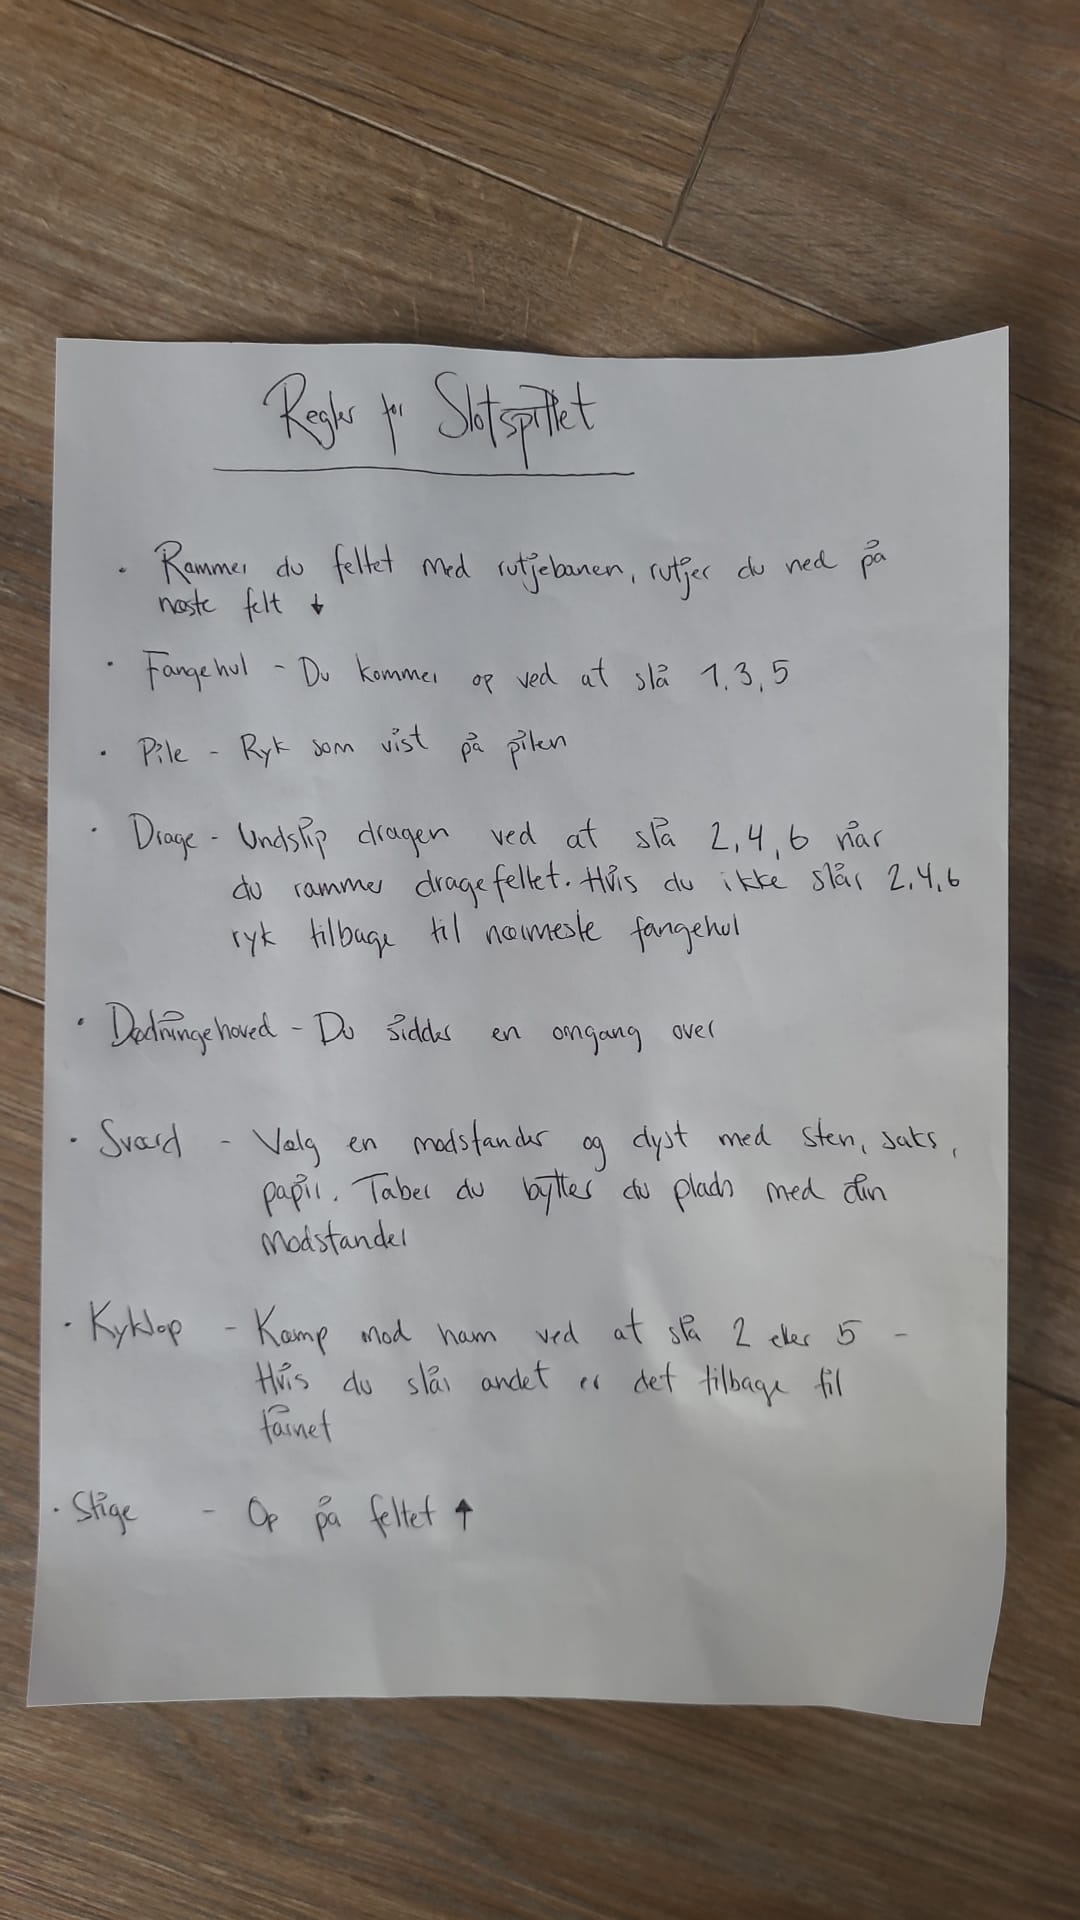 Regler for Slotspillet
• Rammer du feltet med rutjebanen, rutjer du ned på
næste felt ↓
• Fangehul - Du kommer op ved at slå 1, 3, 5
• Pile - Ryk som vist på pilen
• Drage - Undslip dragen ved at slå 2, 4, 6 når
du rammer dragefeltet. Hvis du ikke slår 2, 4, 6
ryk tilbage til nærmeste fangehul
• Dødningehoved - Du sidder en omgang over
• Sværd - Vælg en modstander og dyst med sten, saks,
papir. Taber du bytter du plads med din
modstander
• Kyklop - Kæmp mod ham ved at slå 2 eller 5 -
Hvis du slår andet er det tilbage til
tårnet
• Stige - Op på feltet ↑